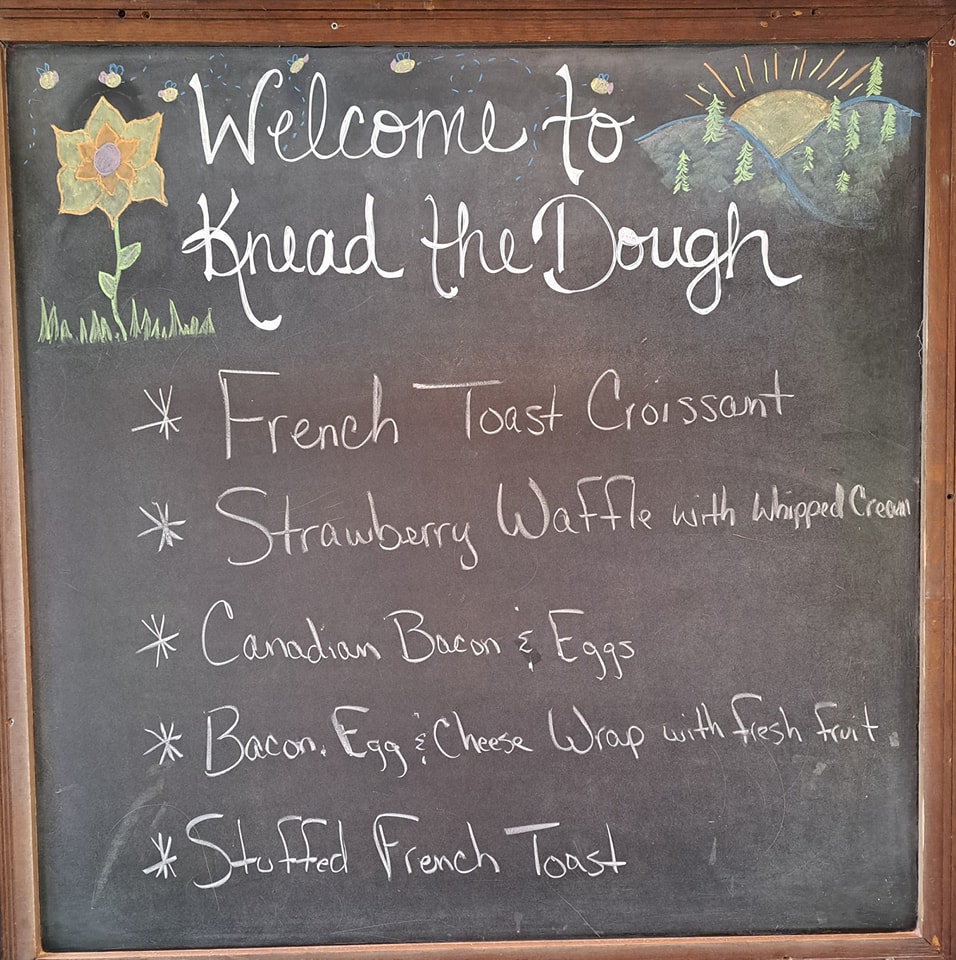 Welcome to
Knead the Dough
* French Toast Croissant
* Strawberry Waffle with Whipped Cream
* Canadian Bacon & Eggs
* Bacon, Egg & Cheese Wrap with Fresh Fruit
* Stuffed French Toast